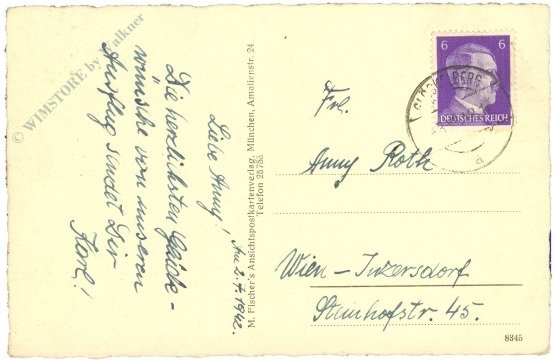 Liebe Anny! Am 2.7.1942.
Die herzlichsten Glück-
wünsche von unseren
Ausflug sendet Dir
Karl!
M. Fischer's Ansichtspostkartenverlag, München, Amalienstr. 24
Telefon 25753
6 6
DEUTSCHES REICH
BERG
a
Frl.
Anny Roth
Wien - Inzersdorf
Steinhofstr. 45.
8345
© WIMSTORE by Falkner